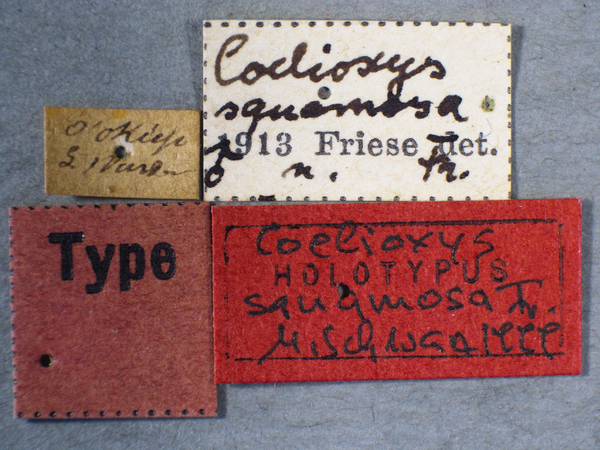 Coelioxys
squamosa
1913 Friese det.
♂ n. Fr.
O'okiep
Type
Coelioxys
HOLOTYPUS
squamosa Fr.
M. Schwarz